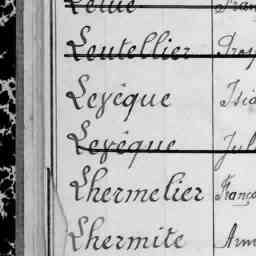 Leutellier
Levêque
Levêque Jul
Lhermelier Franço
Lhermite Arm